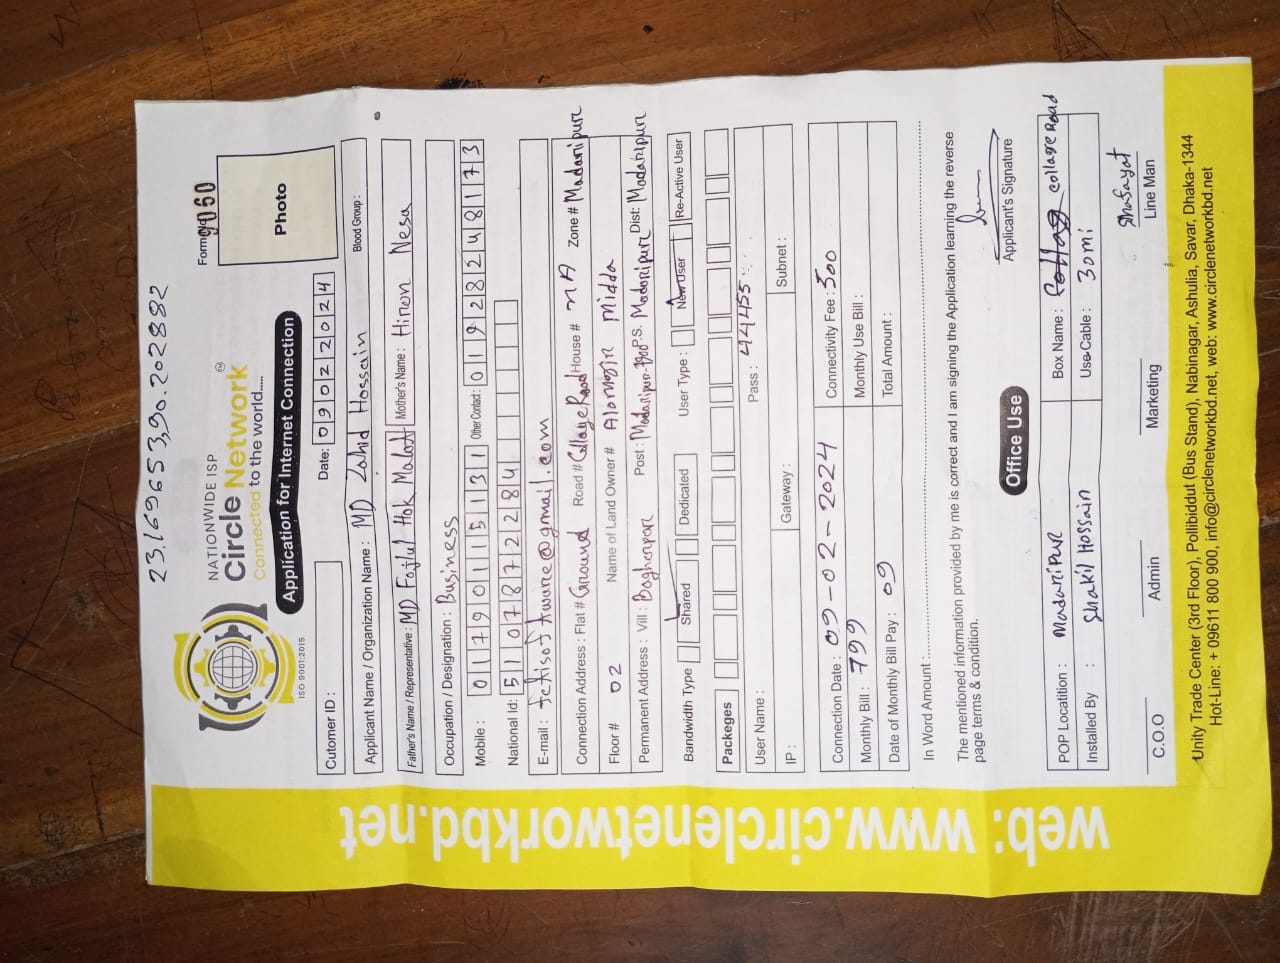 23.169653,90.202882
NATIONWIDE ISP
Circle Network TM
Connected to the world.....
ISO 9001:2015
Form No 9060
Application for Internet Connection
Photo
Cutomer ID : Date: 09022024
Applicant Name / Organization Name : MD Zahid Hossain Blood Group :
Father's Name / Representative : MD Fojlul Hok Malot Mother's Name : Hiron Nesa
Occupation / Designation : Business
Mobile : 01790115131 Other Contact : 01928248173
National Id: 5107872284
E-mail : jetisoftware@gmail.com
Connection Address : Flat # Ground Road # Collage Road House # nA Zone # Madaripur
Floor # 02 Name of Land Owner # Alomgir Midda
Permanent Address : Vill : Boghenparc Post : Madaripur-7900 P.S. Madaripur Dist: Madaripur
Bandwidth Type Shared Dedicated User Type : New User Re-Active User
Packeges
User Name : Pass : 44455
IP : Gateway : Subnet :
Connection Date : 09-02-2024 Connectivity Fee : 500
Monthly Bill : 799 Monthly Use Bill :
Date of Monthly Bill Pay : 09 Total Amount :
In Word Amount :
The mentioned information provided by me is correct and I am signing the Application learning the reverse
page terms & condition.
Applicant's Signature
Office Use
POP Locatition : Madaripur Box Name : collage Road
Installed By : Shakil Hossain Use Cable : 30mi
Shafayat
C.O.O Admin Marketing Line Man
Unity Trade Center (3rd Floor), Pollibiddut (Bus Stand), Nabinagar, Ashulia, Savar, Dhaka-1344
Hot-Line: + 09611 800 900, info@circlenetworkbd.net, web: www.circlenetworkbd.net
web: www.circlenetworkbd.net